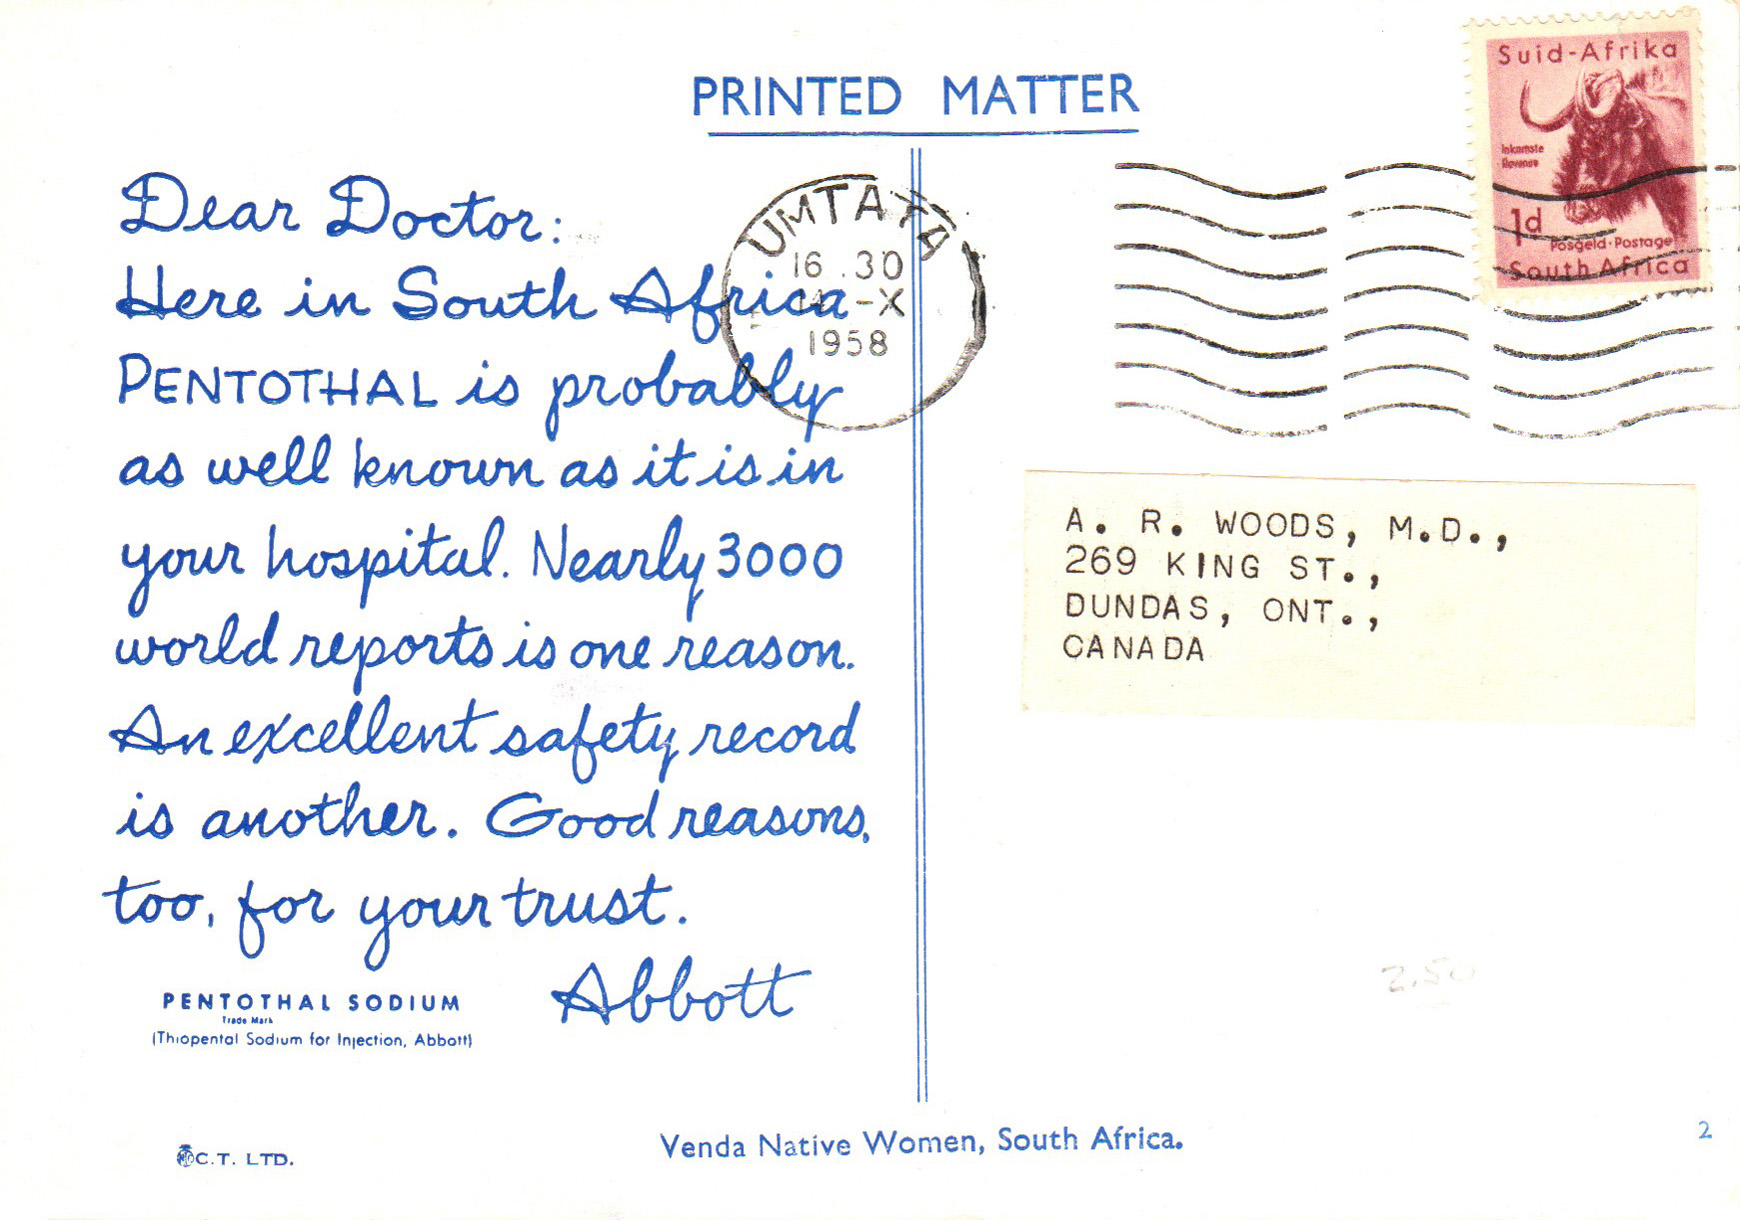 PRINTED MATTER
Dear Doctor:
Here in South Africa
PENTOTHAL is probably
as well known as it is in
your hospital. Nearly 3000
world reports is one reason.
An excellent safety record
is another. Good reasons,
too, for your trust.
Abbott
PENTOTHAL SODIUM
Trade Mark
(Thiopental Sodium for Injection, Abbott)
C.T. LTD.
UMTATA
16.30
-X
1958
Suid-Afrika
Inkomste
Revenue
1d
Posgeld·Postage
South Africa
A. R. WOODS, M.D.,
269 KING ST.,
DUNDAS, ONT.,
CANADA
2.50
Venda Native Women, South Africa.
2